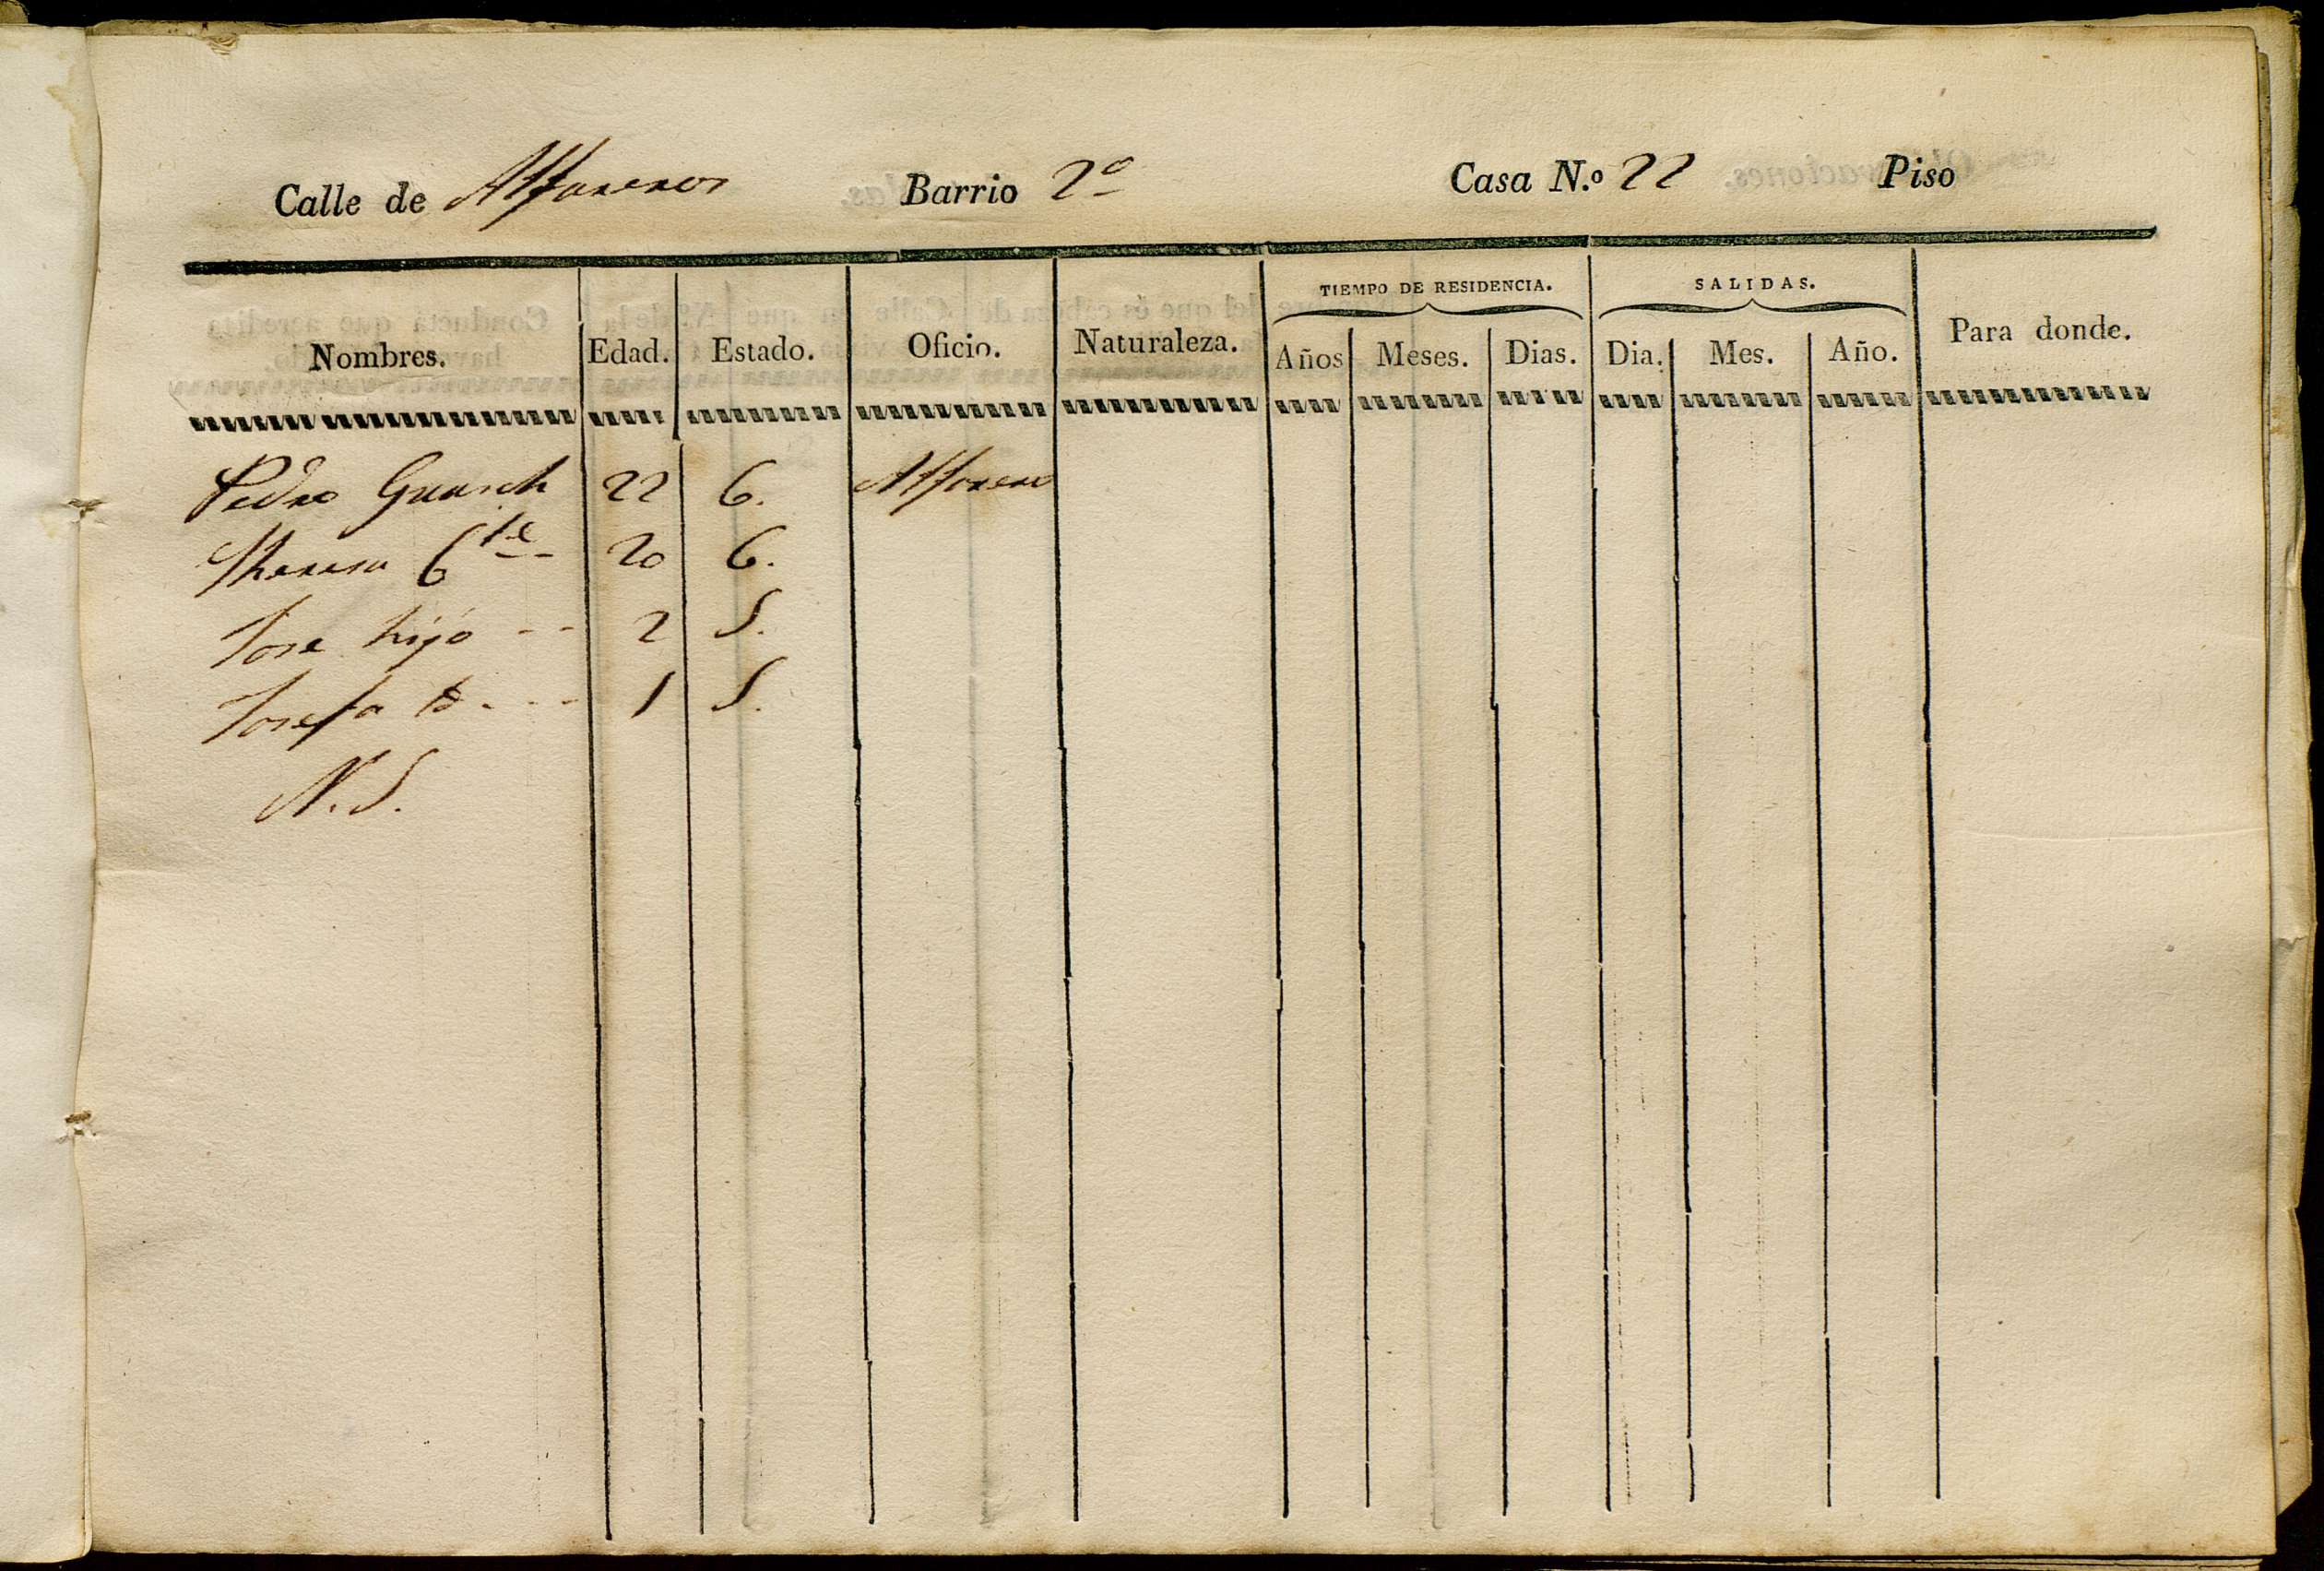 Calle de Alfareros Barrio 2º Casa N.º 22 Piso
TIEMPO DE RESIDENCIA. SALIDAS.
Nombres. Edad. Estado. Oficio. Naturaleza. Años Meses. Dias. Dia. Mes. Año. Para donde.
Pedro Guasch 22 C. Alfarero
Theresa C^te 20 C.
Jose hijo -- 2 S.
Josefa id. -- 1 S.
N. S.